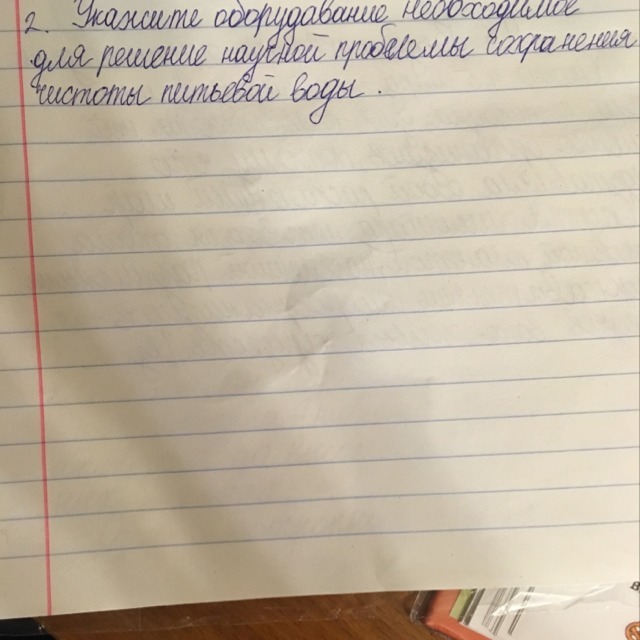 2. Укажите оборудавание необходимое
для решение научной проблемы сохранения
чистоты питьевой воды.